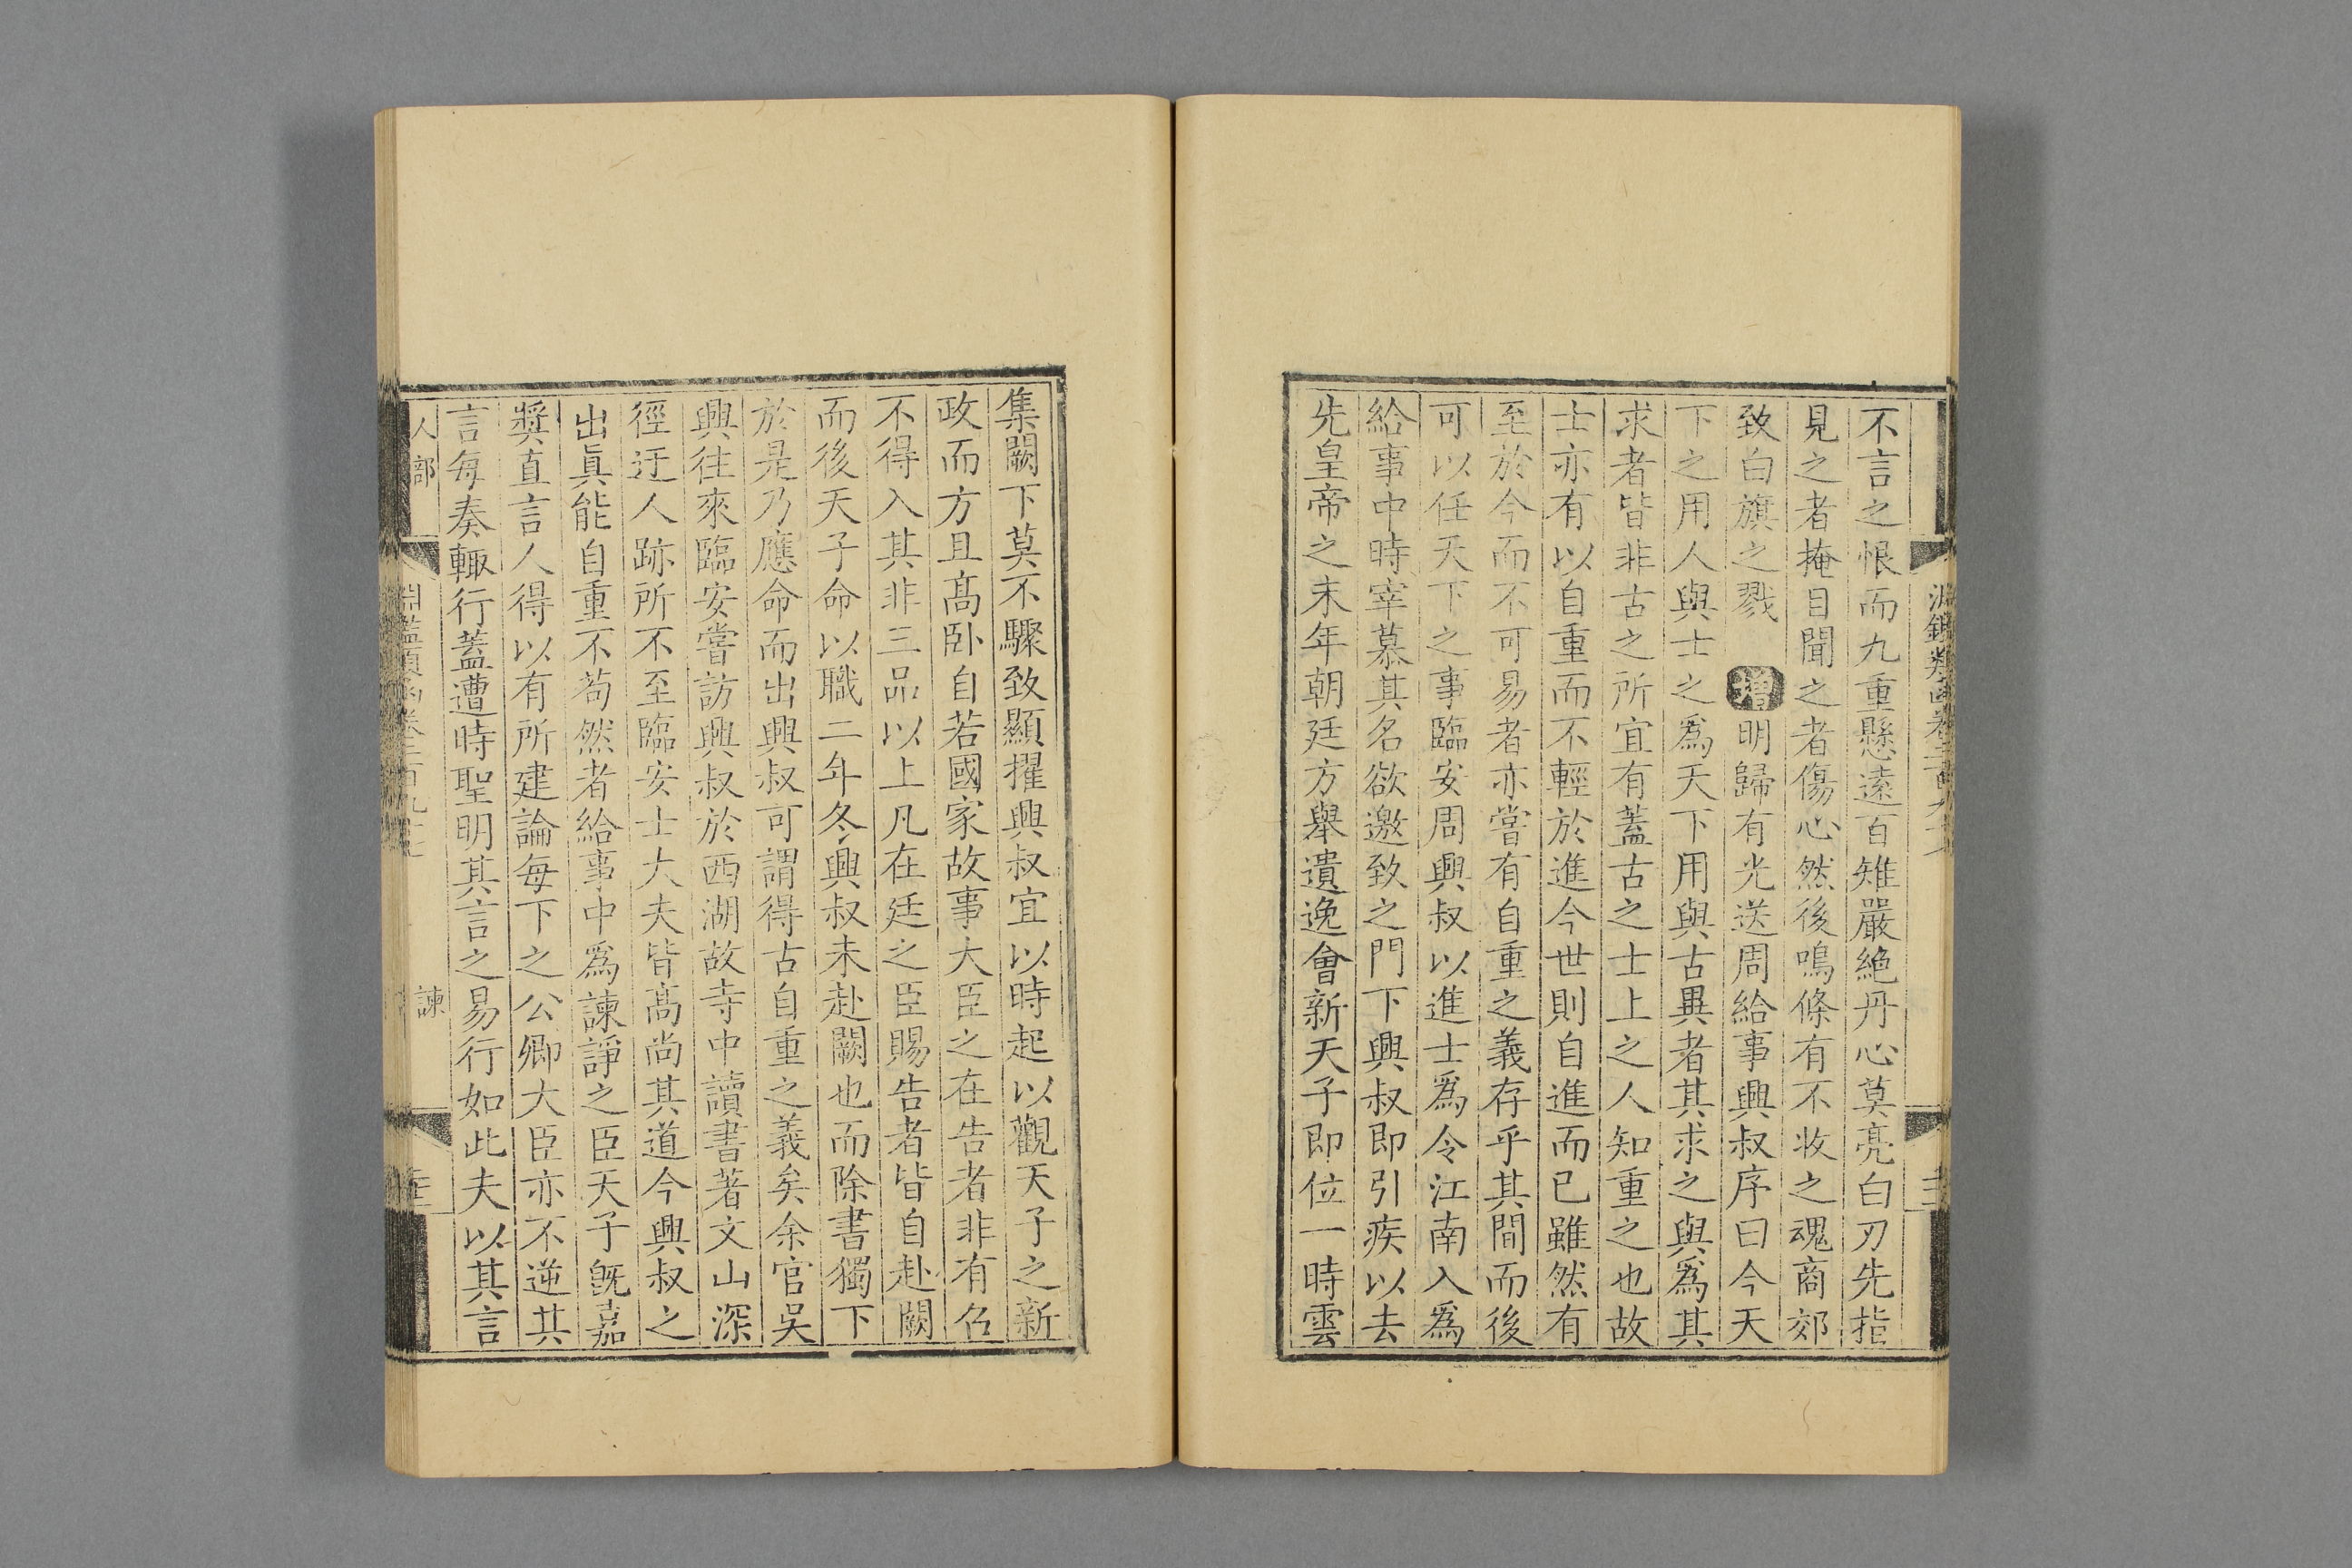 不言之恨而九重懸遠百雉嚴絶丹心莫亮白刃先指
見之者掩目聞之者傷心然後鳴條有不收之魂商郊
致白旗之戮 增明歸有光送周給事興叔序曰今天
下之用人與士之爲天下用與古異者其求之與爲其
求者皆非古之所宜有蓋古之士上之人知重之也故
士亦有以自重而不輕於進今世則自進而已雖然有
至於今而不可易者亦嘗有自重之義存乎其間而後
可以任天下之事臨安周興叔以進士爲令江南入爲
給事中時宰慕其名欲邀致之門下興叔即引疾以去
先皇帝之末年朝廷方舉遺逸會新天子即位一時雲
集闕下莫不驟致顯擢興叔宜以時起以觀天子之新
政而方且髙卧自若國家故事大臣之在告者非有召
不得入其非三品以上凡在廷之臣賜告者皆自赴闕
而後天子命以職二年冬興叔未赴闕也而除書獨下
於是乃應命而出興叔可謂得古自重之義矣余官吳
興往來臨安嘗訪興叔於西湖故寺中讀書著文山深
徑迂人跡所不至臨安士大夫皆髙尚其道今興叔之
出眞能自重不苟然者給事中爲諫諍之臣天子旣嘉
奬直言人得以有所建論每下之公卿大臣亦不逆其
言每奏輙行蓋遭時聖明其言之易行如此夫以其言
人部
諫